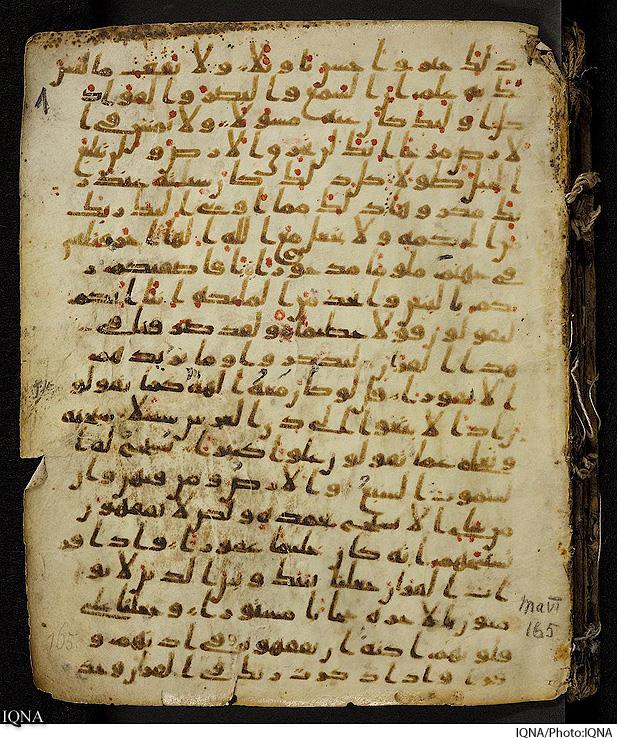 ذلك خير واحسن تاويلا ولا تقف ما ليس
لك به علم ان السمع والبصر والفواد
كل اولئك كان عنه مسولا ولا تمش في ا
لارض مرحا انك لن تخرق الارض ولن تبلغ
الجبال طولا كل ذلك كان سيئه عند ر
بك مكروها ذلك مما اوحى اليك ربك
من الحكمه ولا تجعل مع الله الها اخر فتلقى
في جهنم ملوما مدحورا افاصفيكم ر
بكم بالبنين واتخذ من الملئكه انثا انكم
لتقولون قولا عظيما ولقد صرفنا في
هذا القران ليذكروا وما يزيدهم
الا نفورا قل لو كان معه الهه كما يقولو
ن اذا لابتغوا الى ذي العرش سبيلا سبحنه
وتعلى عما يقولون علوا كبيرا تسبح له ا
لسموت السبع والارض ومن فيهن وان
من شي الا يسبح بحمده ولكن لا تفقهون
تسبيحهم انه كان حليما غفورا واذا قر
ات القران جعلنا بينك وبين الذين لا يو
منون بالاخره حجابا مستورا وجعلنا على
قلوبهم اكنه ان يفقهوه وفي اذنهم و
قرا واذا ذكرت ربك في القران وحده
165
165
IQNA
IQNA/Photo:IQNA